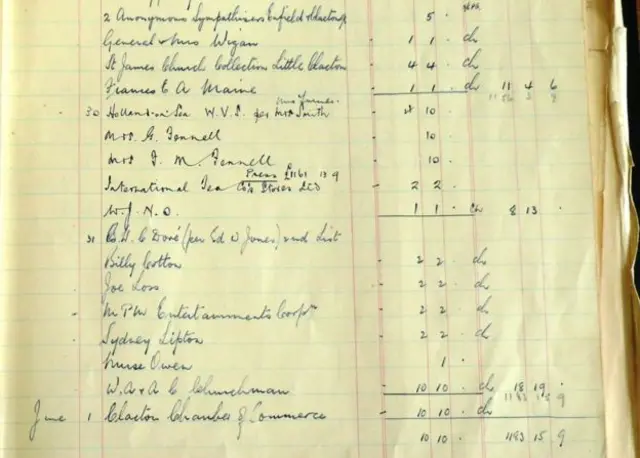 2 Anonymous Sympathisers Enfield & Clacton 5 .
General & Mrs Wigan - 1 1 . ch
St James Church Collection Little Clacton - 4 4 . ch
Frances E A Maine - 1 1 . ch 11 4 6
30 Holland-on-Sea W.V.S. per Mrs Smith - 4 10 .
Mrs G. Fennell - 10 .
Mrs F. M. Fennell - 10 .
Press £1161 18 9
International Tea Co's Stores Ltd - 2 2 .
W.J.N.O. 1 1 . ch 8 13 .
31 C Doré (per Ed W Jones) 2nd List
Billy Cotton - 2 2 . ch
Joe Loss - 2 2 . ch
M.P.M Entertainments Corpn - 2 2 . ch
Sydney Lipton - 2 2 . ch
Nurse Owen 1 .
W. A & A C Churchman - 10 10 . ch 18 19 .
June 1 Clacton Chamber of Commerce - 10 10 . ch
10 10 . 1193 15 9